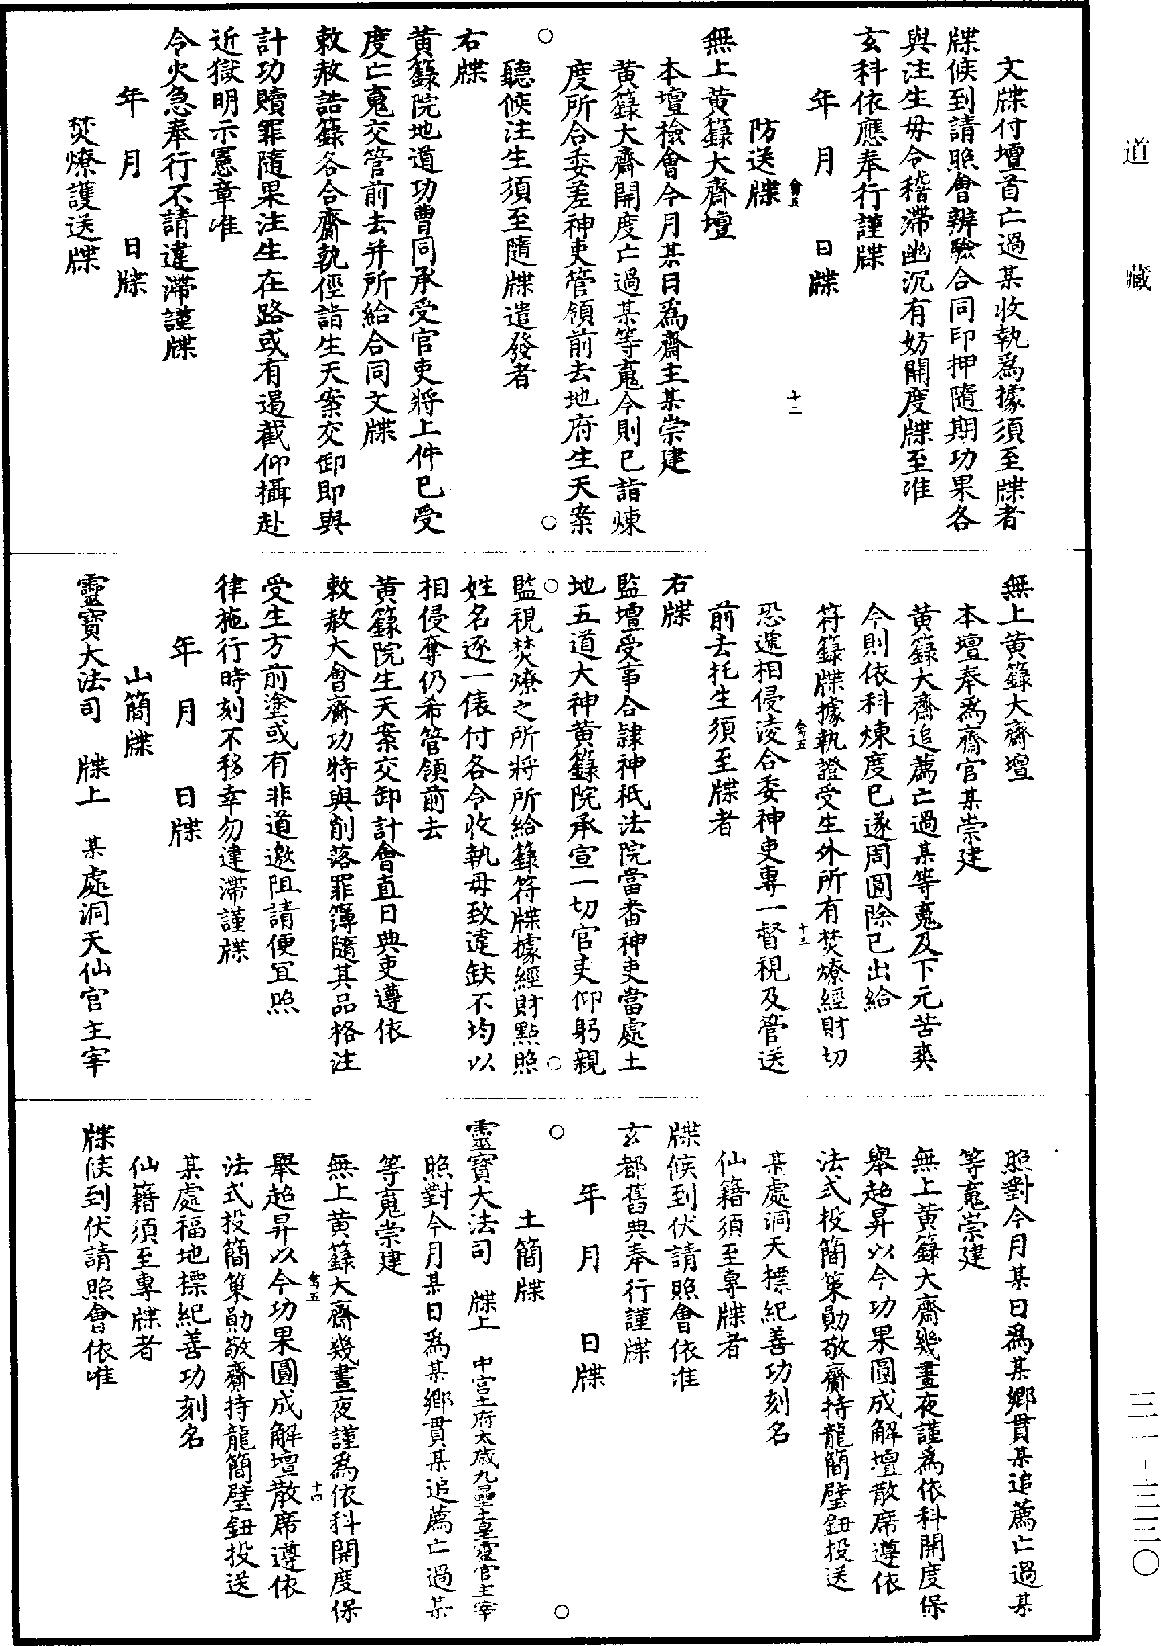 道藏
三一-三三〇
文牒付壇首亡過某收執爲據須至牒者
牒候到請照會辨驗合同印押隨期功果各
與注生毋令稽滯幽沉有妨開度牒至准
玄科依應奉行謹牒
年 月 日牒
防送牒
無上黄籙大齋壇
本壇檢會今月某日爲齋主某崇建
黄籙大齋開度亡過某等䰟今則已詣煉
度所合委差神吏管領前去地府生天案
聽候注生須至隨牒遣發者
右牒
黄籙院地道功曹同承受官吏將上件已受
度亡䰟交管前去并所給合同文牒
敕赦誥籙各合齎執徑詣生天案交卸即與
計功贖罪隨果注生在路或有遏截仰攝赴
近獄明示憲章准
令火急奉行不請違滯謹牒
年 月 日牒
焚燎護送牒
無上黄籙大齋壇
本壇奉爲齋官某崇建
黄籙大齋追薦亡過某等䰟及下元苦爽
今則依科煉度已遂周圓除已出給
符籙牒據執證受生外所有焚燎經財切
恐遞相侵淩合委神吏專一督視及管送
前去托生須至牒者
右牒
監壇受事合隷神祇法院當番神吏當處土
地五道大神黄籙院承宣一切官吏仰躬親
監視焚燎之所將所給籙符牒據經財點照
姓名逐一俵付各令收執毋致違缺不均以
相侵奪仍希管領前去
黄籙院生天案交卸計會直日典吏遵依
敕赦大會齋功特與削落罪簿隨其品格注
受生方前塗或有非道邀阻請便宜照
律施行時刻不移幸勿違滯謹牒
年 月 日牒
山簡牒
靈寶大法司 牒上 某處洞天仙官主宰
照對今月某日爲某鄉貫某追薦亡過某
等䰟崇建
無上黄籙大齋幾晝夜謹爲依科開度保
舉超昇以今功果圓成解壇散席遵依
法式投簡策勛敬齎持龍簡璧鈕投送
某處洞天標紀善功刻名
仙籍須至專牒者
牒候到伏請照會依准
玄都舊典奉行謹牒
年 月 日牒
土簡牒
靈寶大法司 牒上 中宮土府太歲九壘土皇靈官主宰
照對今月某日爲某鄉貫某追薦亡過某
等䰟崇建
無上黄籙大齋幾晝夜謹爲依科開度保
舉超昇以今功果圓成解壇散席遵依
法式投簡策勛敬齎持龍簡璧鈕投送
某處福地標紀善功刻名
仙籍須至專牒者
牒候到伏請照會依准